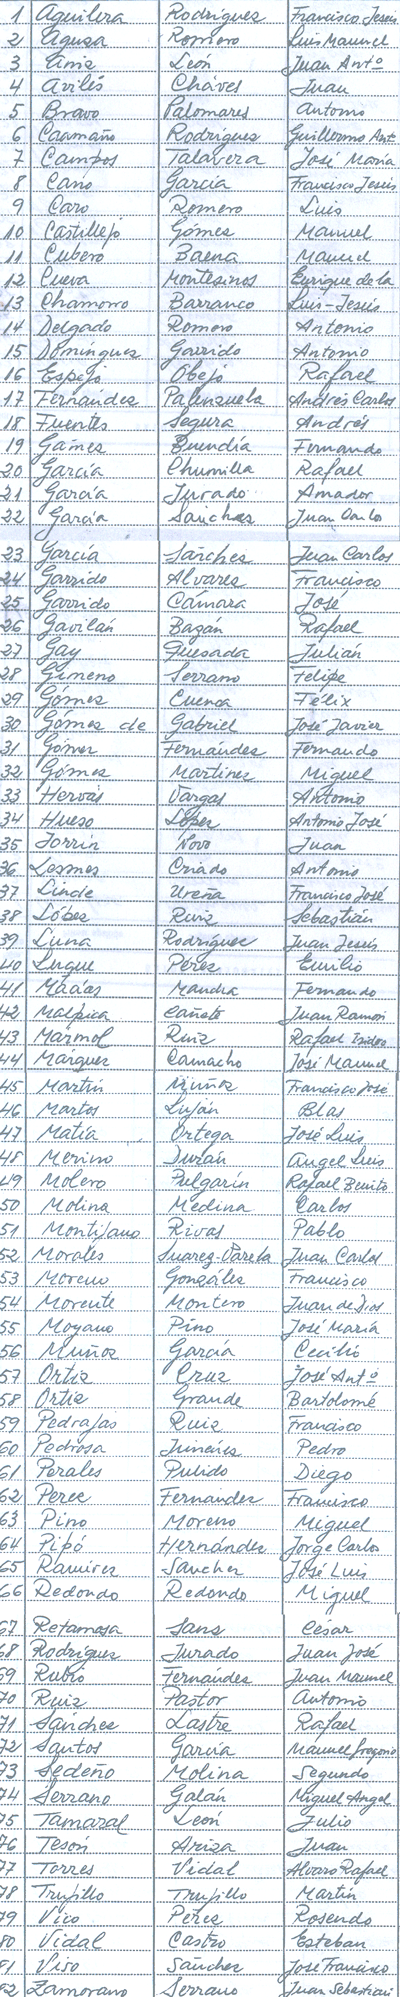 1 Aguilera Rodríguez Francisco Jesús
2 Agusa Romero Luis Manuel
3 Ariz León Juan Antº
4 Avilés Cháves Juan
5 Bravo Palomares Antonio
6 Caamaño Rodríguez Guillermo Ant.
7 Campos Talavera José María
8 Cano García Francisco Jesús
9 Caro Romero Luis
10 Castillejo Gómez Manuel
11 Cubero Baena Manuel
12 Cueva Montesinos Enrique de la
13 Chamorro Barranco Luis-Jesús
14 Delgado Romero Antonio
15 Domínguez Garrido Antonio
16 Espejo Obejo Rafael
17 Fernández Palenzuela Andrés Carlos
18 Fuentes Segura Andrés
19 Gámez Buendía Fernando
20 García Chumilla Rafael
21 García Jurado Amador
22 García Sánchez Juan Carlos
23 García Sánchez Juan Carlos
24 Garrido Alvares Francisco
25 Garrido Cámara José
26 Gavilán Bazán Rafael
27 Gay Quesada Julián
28 Gimeno Serrano Felipe
29 Gómez Cuenca Félix
30 Gómez de Gabriel José Javier
31 Gómez Fernández Fernando
32 Gómez Martínez Miguel
33 Hervás Vargas Antonio
34 Hueso López Antonio José
35 Jorrín Novo Juan
36 Lesmes Criado Antonio
37 Linde Ureña Francisco José
38 López Ruiz Sebastián
39 Luna Rodríguez Juan Jesús
40 Luque Pérez Emilio
41 Mandia Fernando
42 Malpica Cañete Juan Ramón
43 Mármol Ruiz Rafael Isidro
44 Márquez Camacho José Manuel
45 Martín Muñoz Francisco José
46 Martos Luján Blas
47 Matía Ortega José Luis
48 Merino Durán Angel Luis
49 Molero Pulgarín Rafael Benito
50 Molina Medina Carlos
51 Montijano Rivas Pablo
52 Morales Suarez-Varela Juan Carlos
53 Moreno González Francisco
54 Morente Montero Juan de Dios
55 Moyano Pino José María
56 Muñoz García Cecilio
57 Ortiz Cruz José Antº
58 Ortiz Grande Bartolomé
59 Pedrajas Ruiz Francisco
60 Pedrosa Jiménez Pedro
61 Perales Pulido Diego
62 Perez Fernandez Francisco
63 Pino Moreno Miguel
64 Pipó Hernández Jorge Carlos
65 Ramírez Sanchez José Luis
66 Redondo Redondo Miguel
67 Retamosa Sanz César
68 Rodríguez Jurado Juan José
69 Rubio Fernández Juan Manuel
70 Ruiz Pastor Antonio
71 Sánchez Lastre Rafael
72 Santos García Manuel Gregorio
73 Sedeño Molina Segundo
74 Serrano Galán Miguel Angel
75 Tamaral León Julio
76 Tesón Ariza Juan
77 Torres Vidal Alvaro Rafael
78 Trujillo Trujillo Martín
79 Vico Pérez Rosendo
80 Vidal Castro Esteban
81 Viso Sánchez José Francisco
82 Zamorano Serrano Juan Sebastián